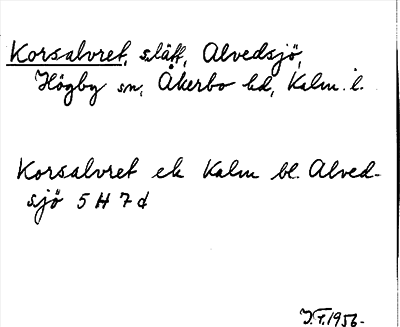 Korsalvret, slätt, Alvedsjö,
Högby sn, Åkerbo hd, Kalm. l.
Korsalvret ek Kalm bl. Alved-
sjö 5 H 7 d
J.F. 1956-